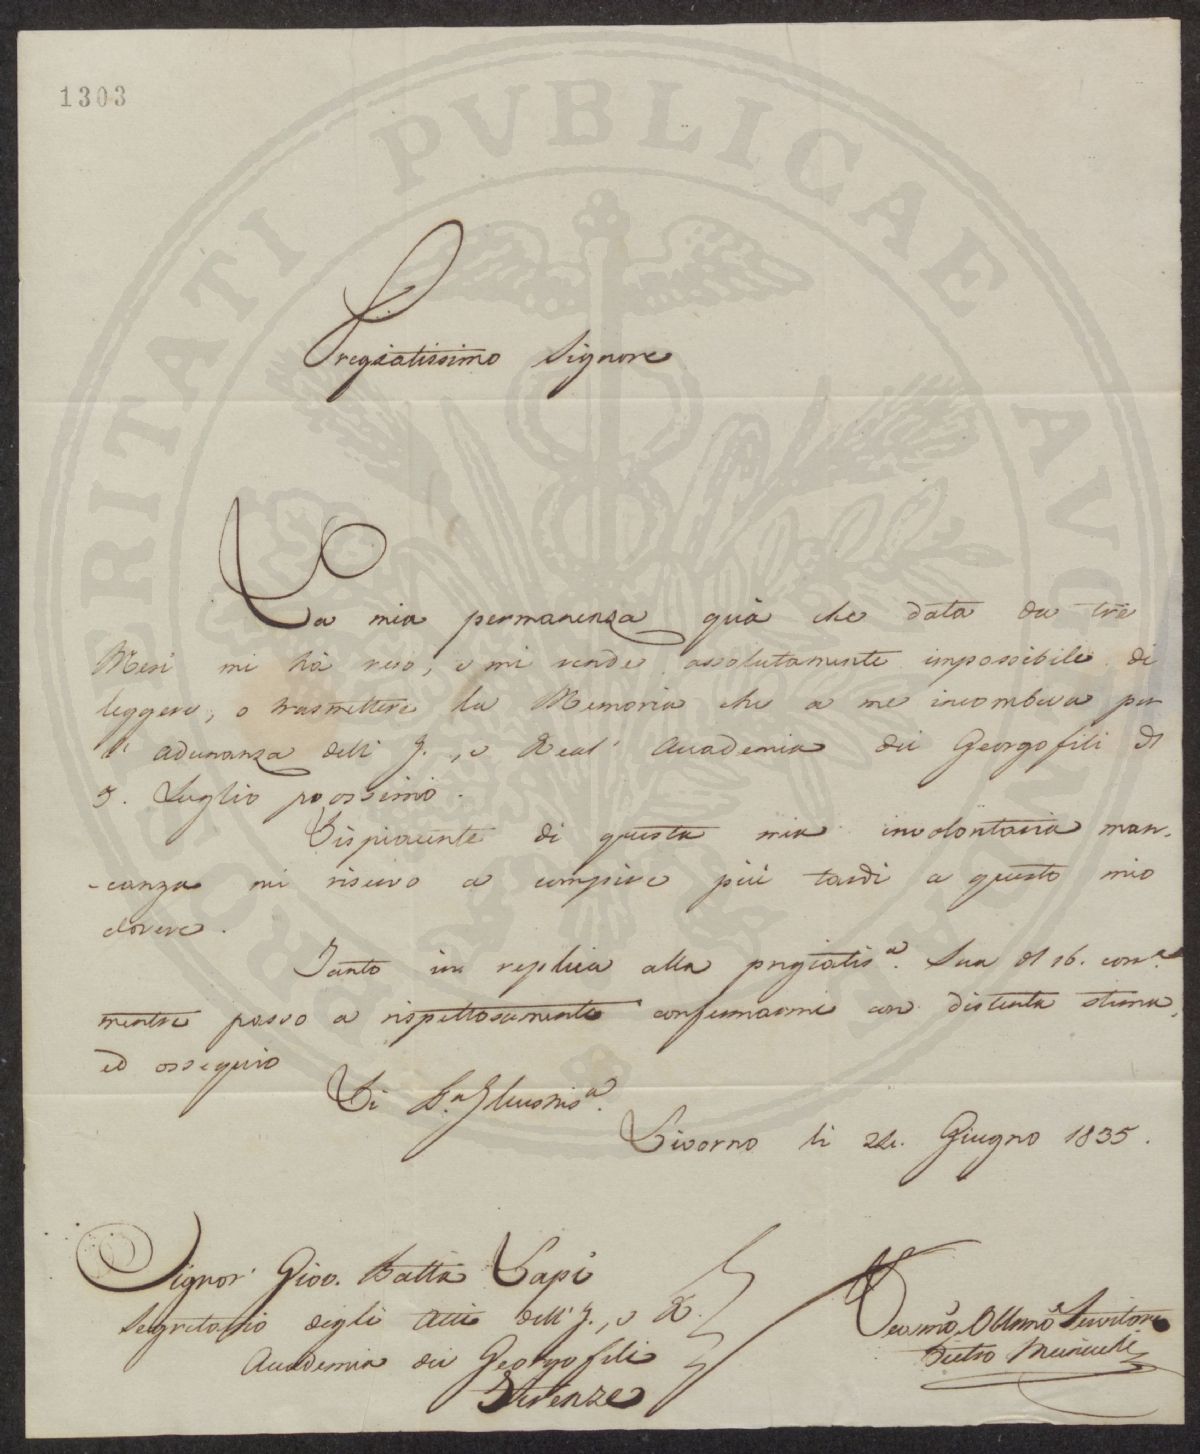 1303
PVBLICAE
Pregiatissimo Signore
La mia permanenza quà che data da tre
Mesi mi hà reso, e mi rende assolutamente impossibile di
leggere, o trasmettere la Memoria che a me incombeva per
l'adunanza dell'I., e Real' Accademia dei Georgofili di
5. Luglio prossimo.
Dispiacente di questa mia involontaria man-
-canza mi riservo a compire più tardi a questo mio
dovere.
Tanto in replica alla pregiatis.ª Sua di 16. corr.e
mentre passo a rispettosamente confermarmi con distinta stima,
ed ossequio
Di S.ª Illustris.ª
Livorno li 22. Giugno 1835.
Signor' Giov. Batta Lapi
Segretario degli Atti dell'I., e R.
Accademia dei Georgofili
Firenze
Devmo Obbmo Servitore
Pietro